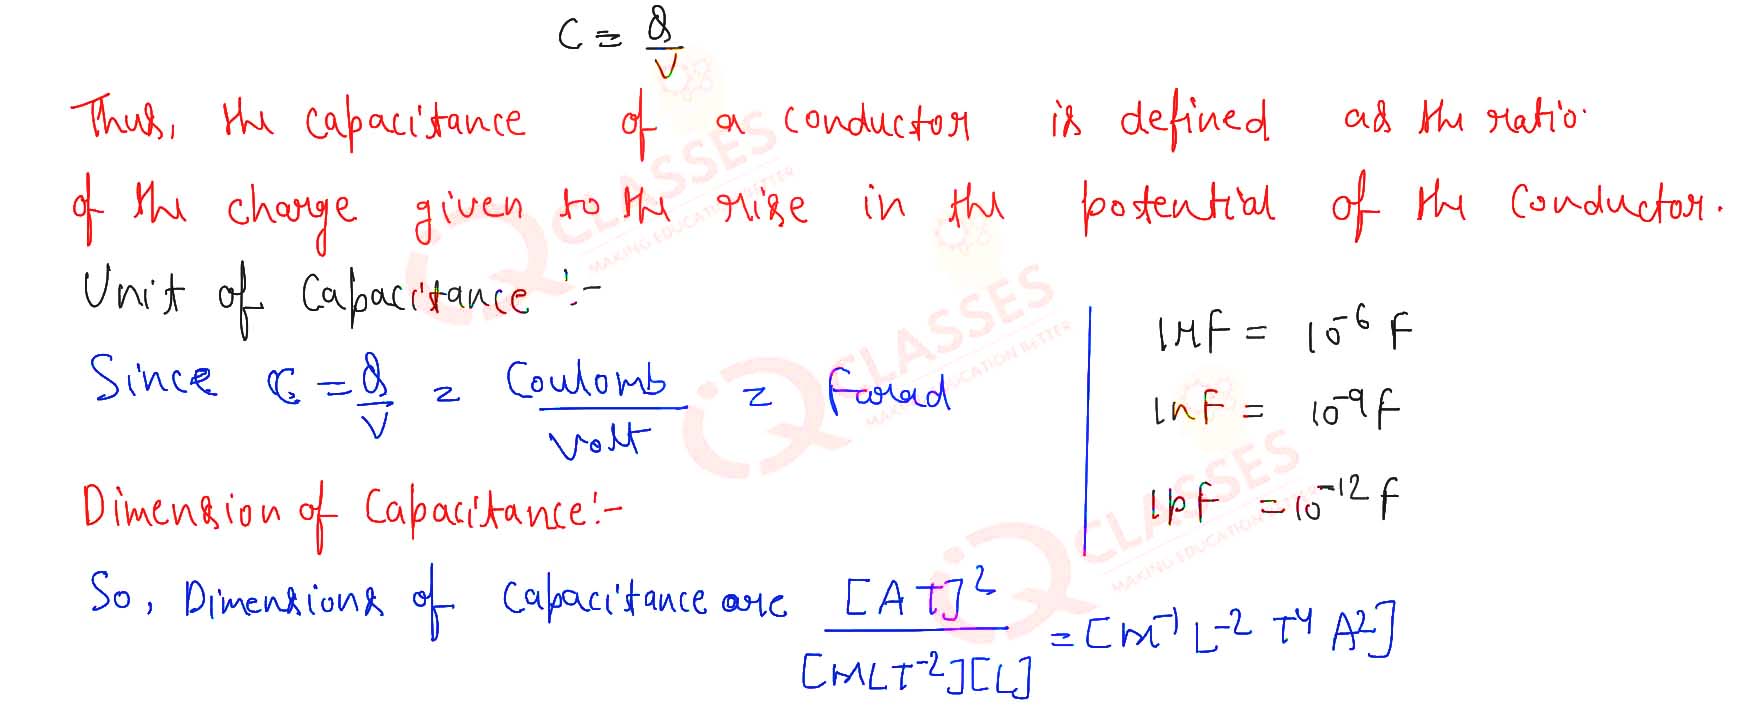 C = Q/V
Thus, the capacitance of a conductor is defined as the ratio.
of the charge given to the rise in the potential of the conductor.
Unit of Capacitance :-
Since C = Q/V = Coulomb/Volt = Farad
1μF = 10⁻⁶ F
1nF = 10⁻⁹ F
1pF = 10⁻¹² F
Dimension of Capacitance:-
So, Dimensions of Capacitance are [AT]²/[MLT⁻²][L] = [M⁻¹ L⁻² T⁴ A²]
iQ CLASSES
MAKING EDUCATION BETTER
iQ CLASSES
MAKING EDUCATION BETTER
iQ CLASSES
MAKING EDUCATION BETTER